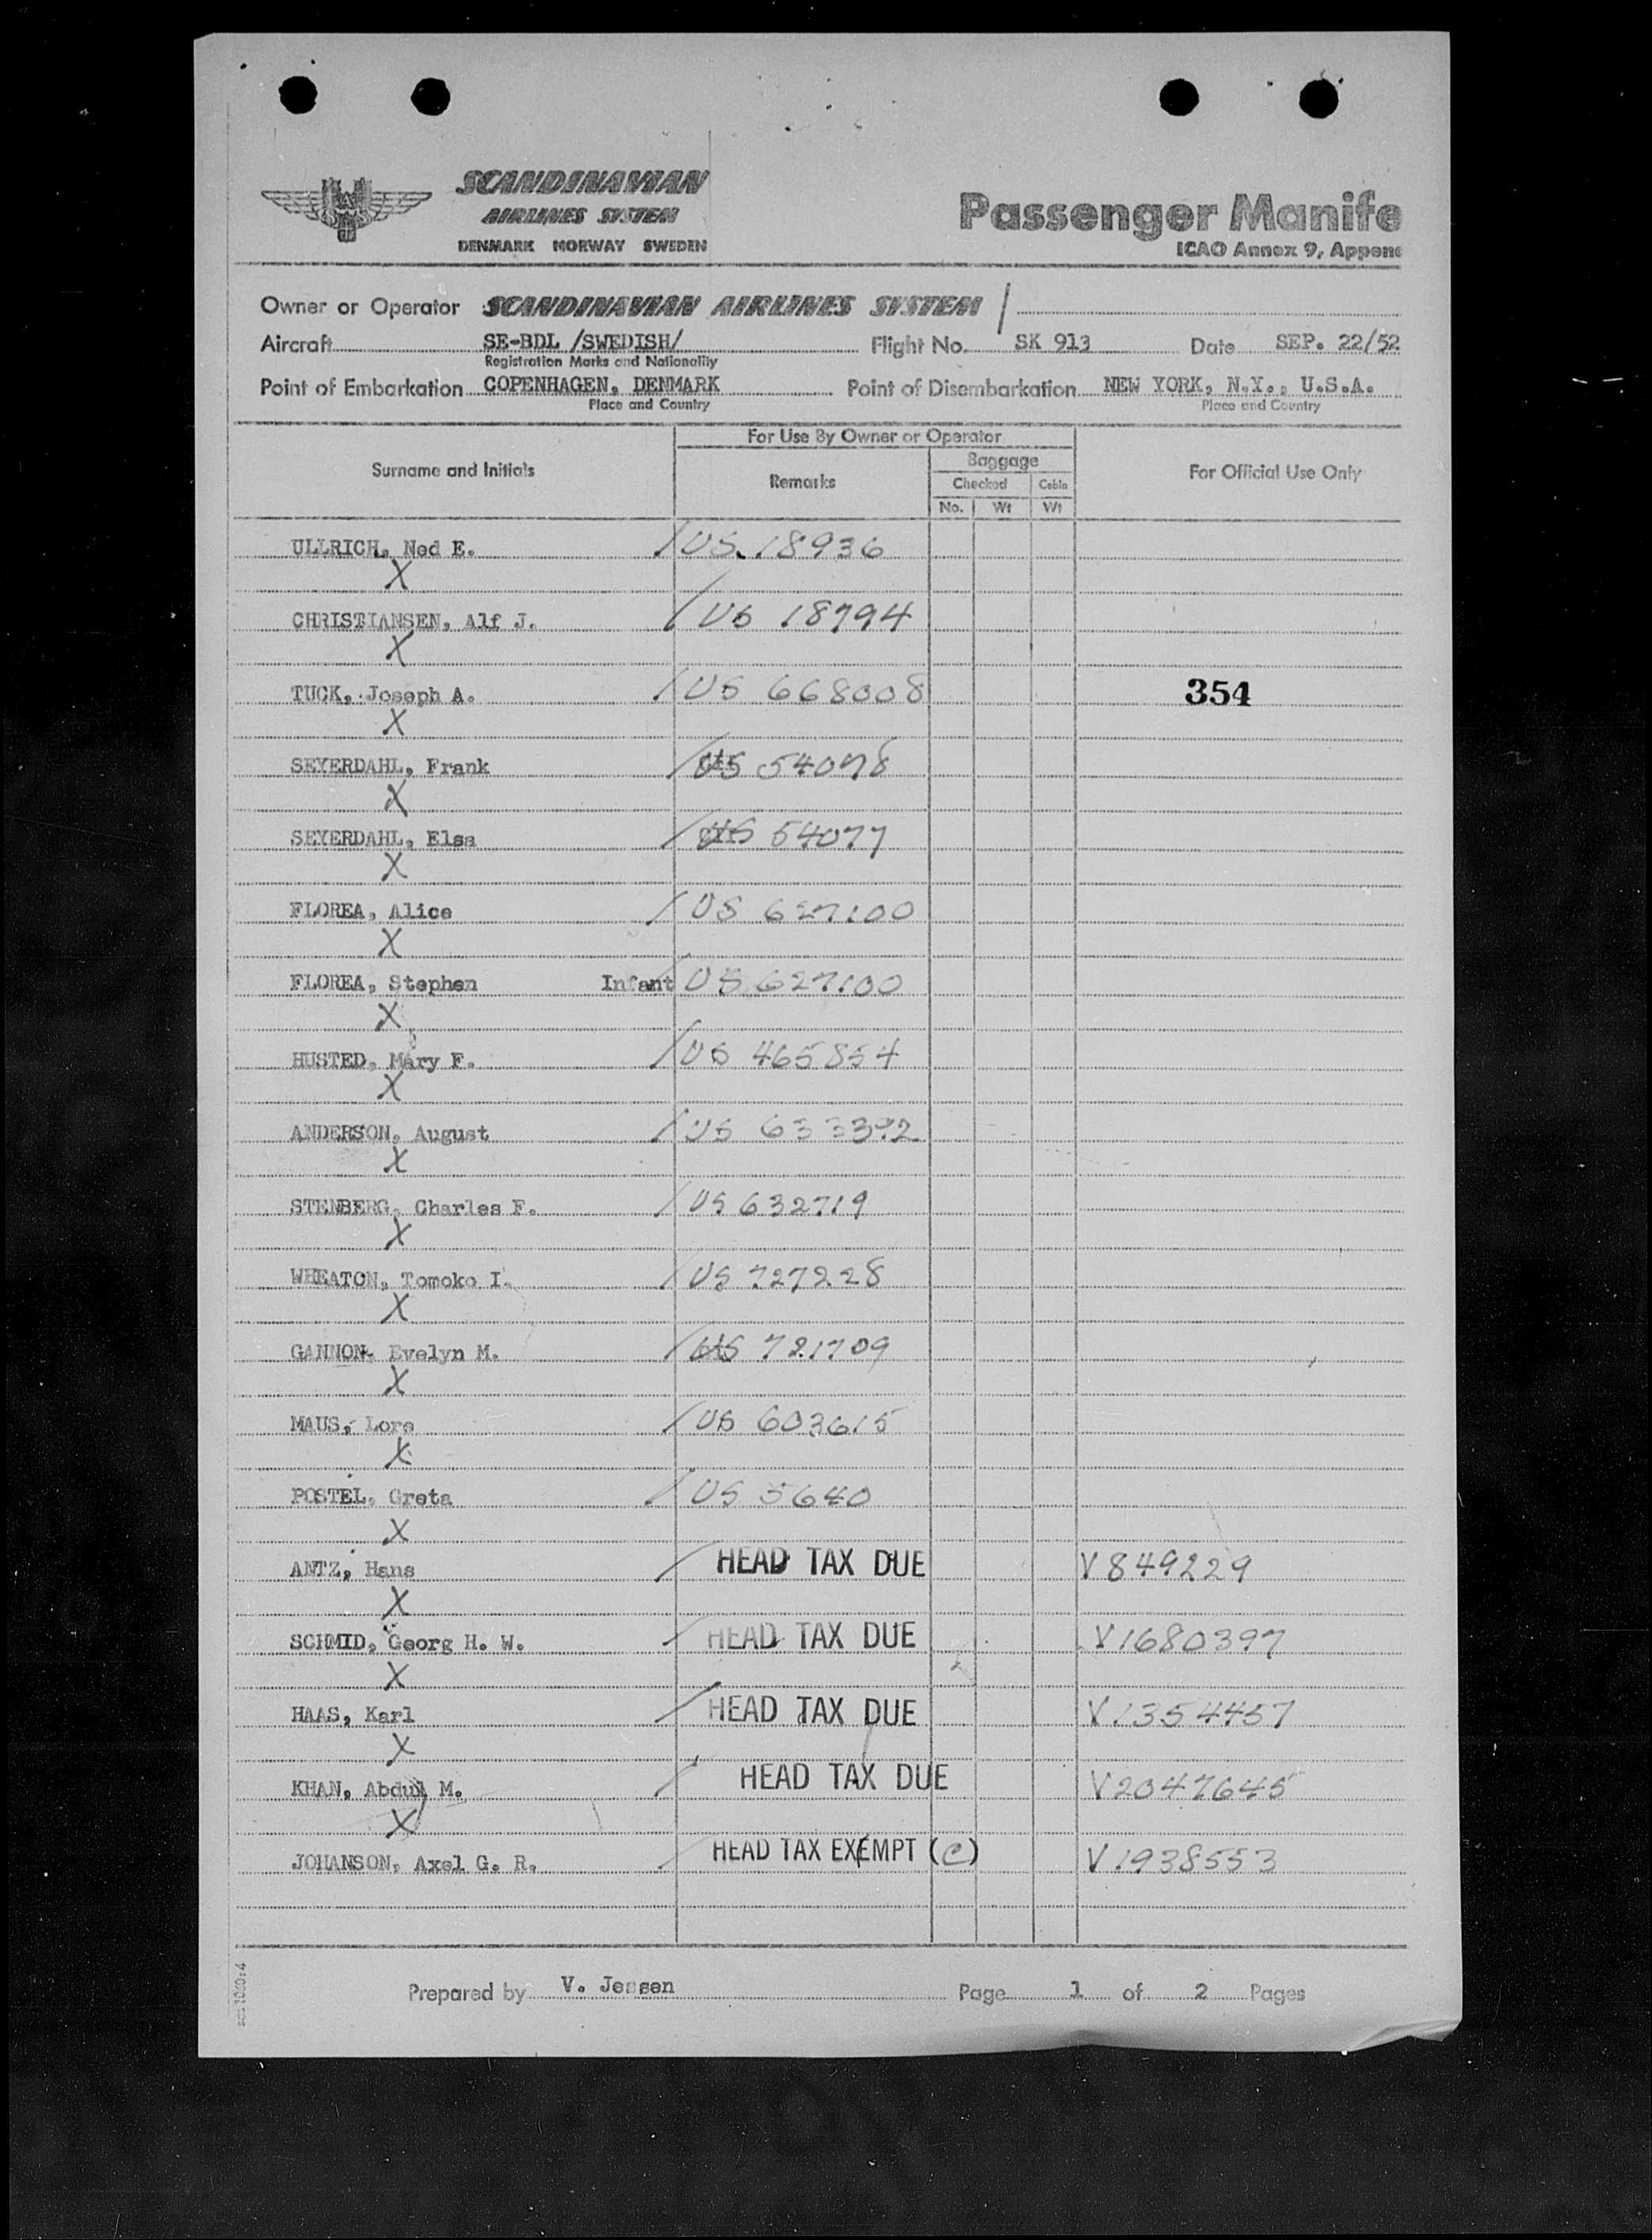 SCANDINAVIAN
AIRLINES SYSTEM
DENMARK NORWAY SWEDEN
Passenger Manife
ICAO Annex 9, Appen
Owner or Operator SCANDINAVIAN AIRLINES SYSTEM /
Aircraft SE-BDL /SWEDISH/ Flight No. SK 913 Date SEP. 22/52
Registration Marks and Nationality
Point of Embarkation COPENHAGEN, DENMARK Point of Disembarkation NEW YORK, N.Y., U.S.A.
Place and Country Place and Country
For Use By Owner or Operator
Surname and Initials Remarks Baggage For Official Use Only
Checked Cabin
No. Wt Wt
ULLRICH, Ned E. / US 18936
X
CHRISTIANSEN, Alf J. / US 18794
X
TUCK, Joseph A. / US 668008 354
X
SEYERDAHL, Frank / US 54078
X
SEYERDAHL, Elsa / US 54077
X
FLOREA, Alice / US 627100
X
FLOREA, Stephen Infant / US 627100
X
HUSTED, Mary F. / US 465854
X
ANDERSON, August / US 633392
X
STENBERG, Charles F. / US 632719
X
WHEATON, Tomoko I. / US 727228
X
GANNON, Evelyn M. / US 721709
X
MAUS, Lore / US 603615
X
POSTEL, Greta / US 5640
X
ANTZ, Hans / HEAD TAX DUE V849229
X
SCHMID, Georg H. W. / HEAD TAX DUE V1680397
X
HAAS, Karl / HEAD TAX DUE V1354457
X
KHAN, Abdul M. / HEAD TAX DUE V2047645
X
JOHANSON, Axel G. R. / HEAD TAX EXEMPT (C) V1938553
Prepared by V. Jessen Page 1 of 2 Pages